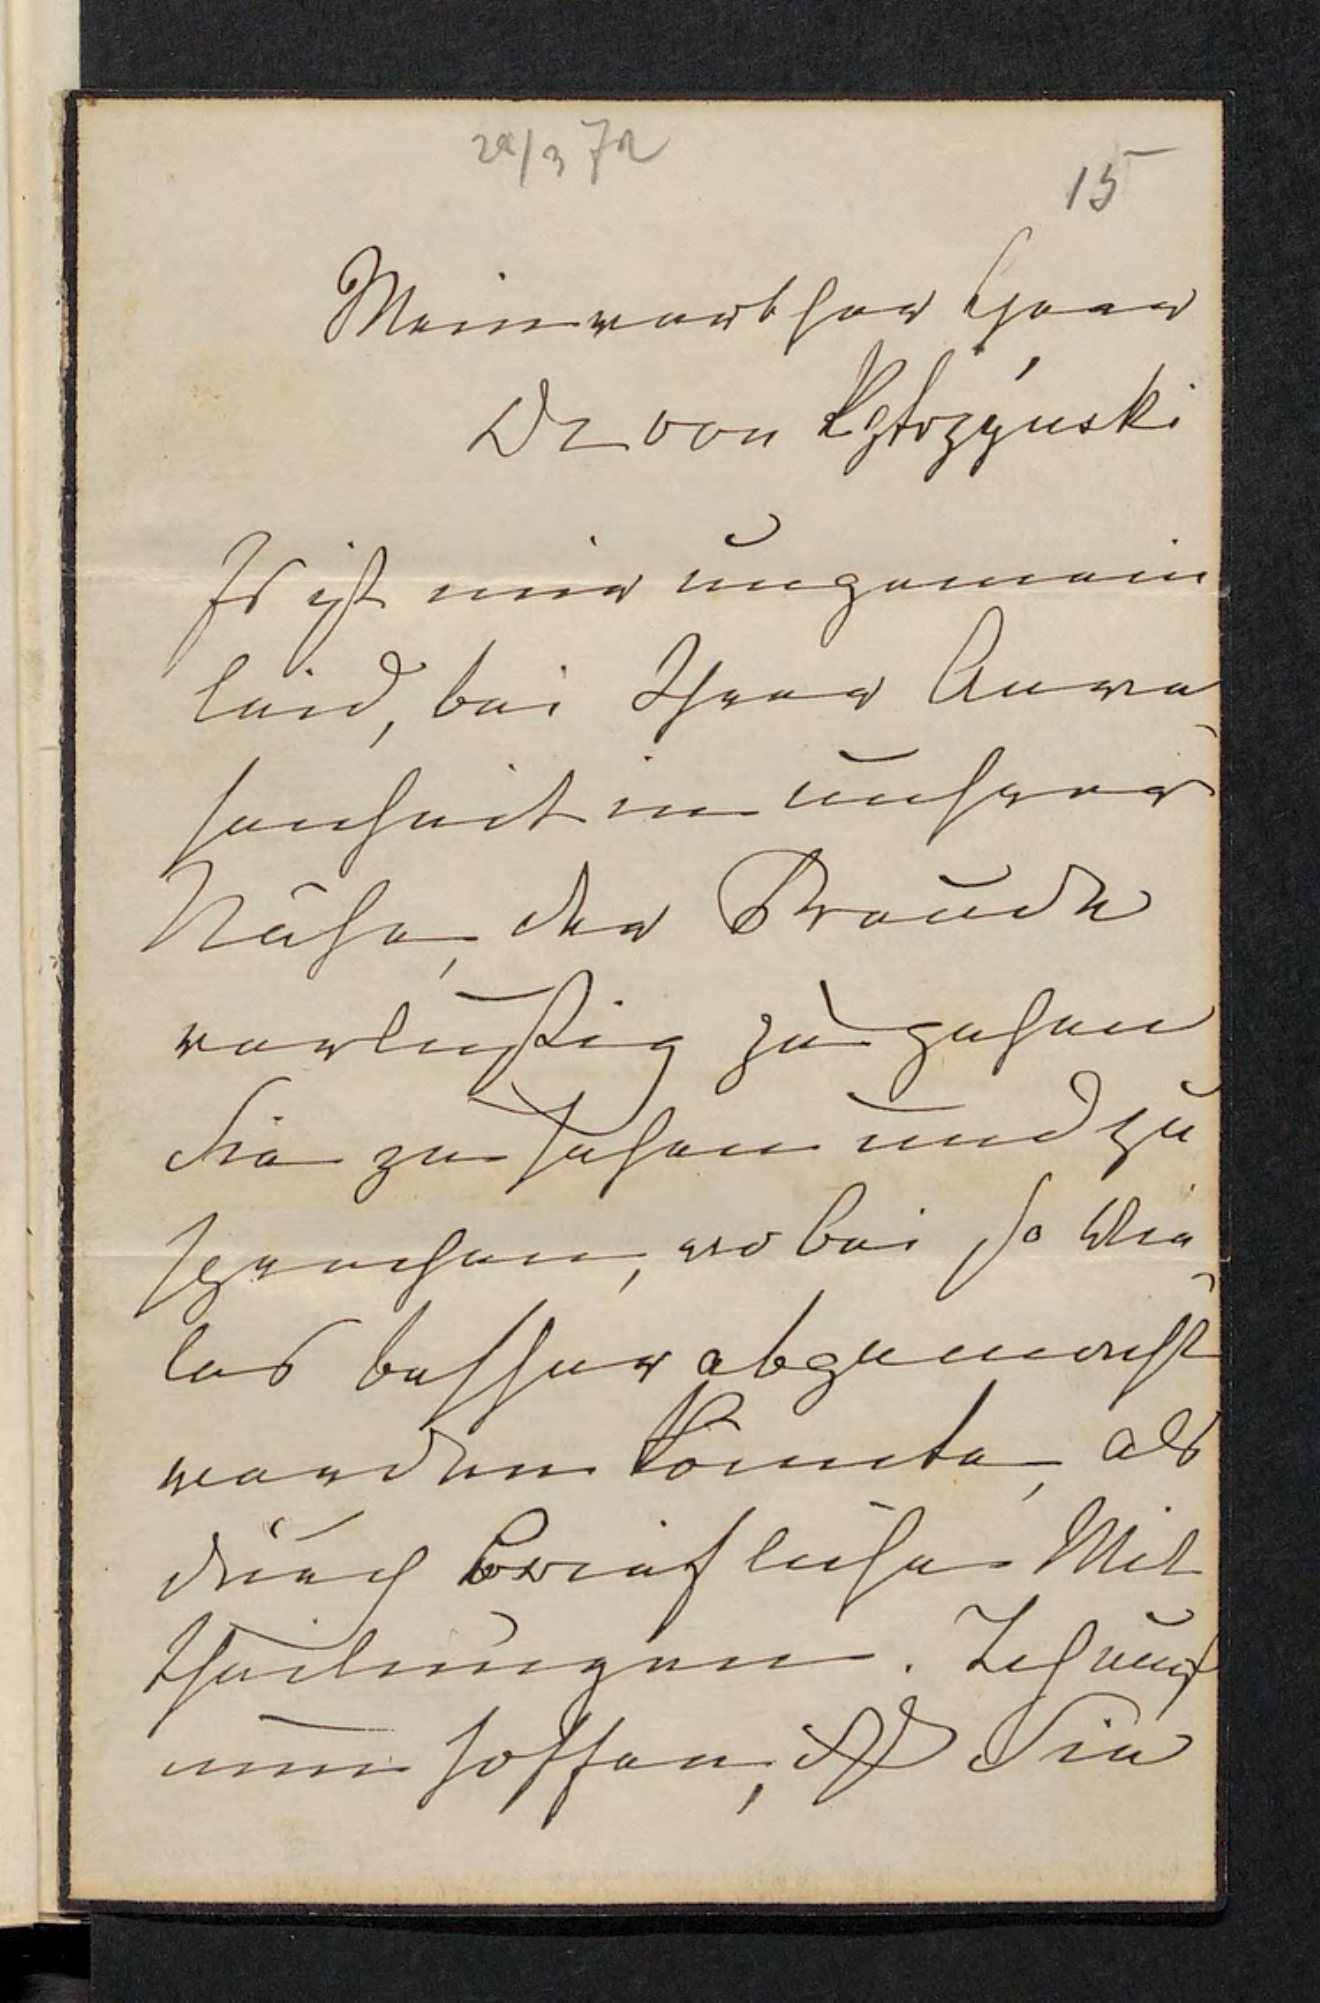 28/3 72
15
Mein werther Herr
Dr von Kętrzyński
Es ist mir ungemein
leid, bei Ihrer Anwe
senheit in unserer
Nähe, der Freude
verlustig zu gehen
Sie zu sehen und zu
sprechen, wo bei so Vie
les besser abgemacht
werden könnte, als
durch briefliche Mit
theilungen. Ich muß
nun hoffen, daß Sie